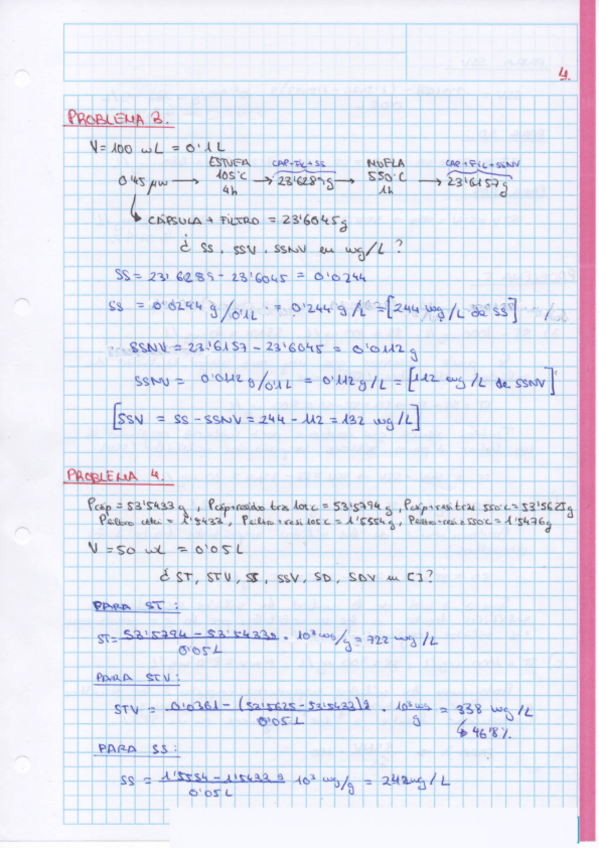 4.
PROBLEMA 3.
V=100 mL = 0'1 L
ESTUFA CAP+FIL+SS MUFLA CAP+FIL+SSNV
0'45 μm → 105ºC 4h → 23'6289g → 550ºC 1h → 23'6157g
CÁPSULA + FILTRO = 23'6045g
¿ SS, SSV, SSNV en mg/L ?
SS = 23'6289 - 23'6045 = 0'0244
SS = 0'0244 g/0'1L = 0'244 g/L = [244 mg/L de SS]
SSNV = 23'6157 - 23'6045 = 0'0112 g
SSNV = 0'0112 g/0'1L = 0'112 g/L = [112 mg/L de SSNV]
[SSV = SS - SSNV = 244 - 112 = 132 mg/L]
PROBLEMA 4.
Pcáp = 53'5433 g, Pcáp+residuo tras 105ºC = 53'5794g, Pcáp+resi tras 550ºC = 53'5625g
Pfiltro = 1'5433, Pfiltro+resi 105ºC = 1'5554g, Pfiltro+resi 550ºC = 1'5476g
V = 50 mL = 0'05 L
¿ ST, STV, SS, SSV, SD, SDV en [ ]?
PARA ST :
ST = 53'5794 - 53'5433g / 0'05L · 10³ mg/g = 722 mg/L
PARA STV:
STV = 0'0361 - (53'5625 - 53'5433)g / 0'05L · 10³ mg/g = 338 mg/L
↳ 46'8%
PARA SS:
SS = 1'5554 - 1'5433 g / 0'05L 10³ mg/g = 242 mg/L